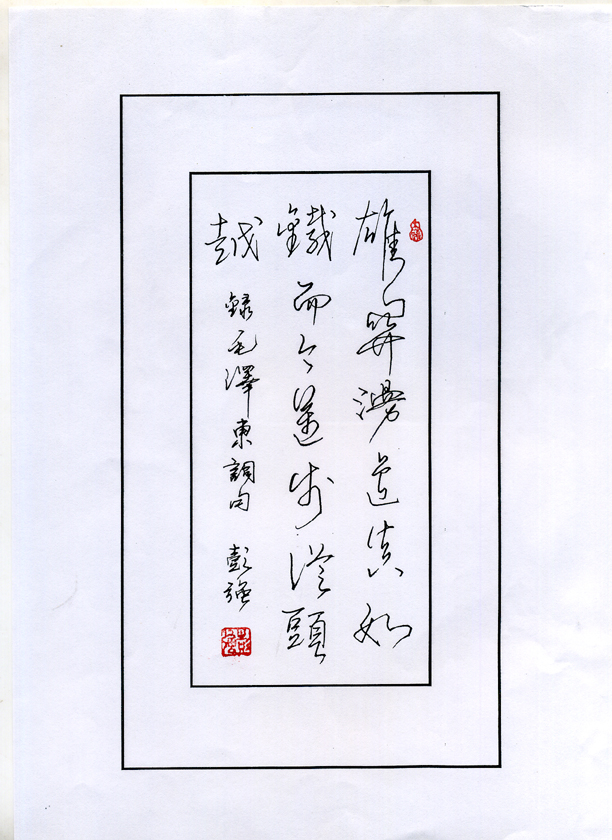 雄關漫道真如
鐵而今邁步從頭
越
錄毛澤東詞句 彭强